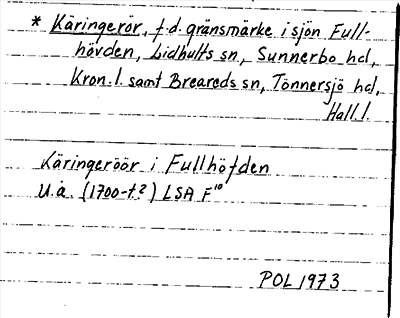 * Käringerör, f.d. gränsmärke i sjön Full-
hövden, Lidhults sn, Sunnerbo hd,
Kron. l. samt Breareds sn, Tönnersjö hd,
Hall. l.
Käringeröör i Fullhöfden
U.å. (1700-t?) LSA F¹⁰
POL 1973